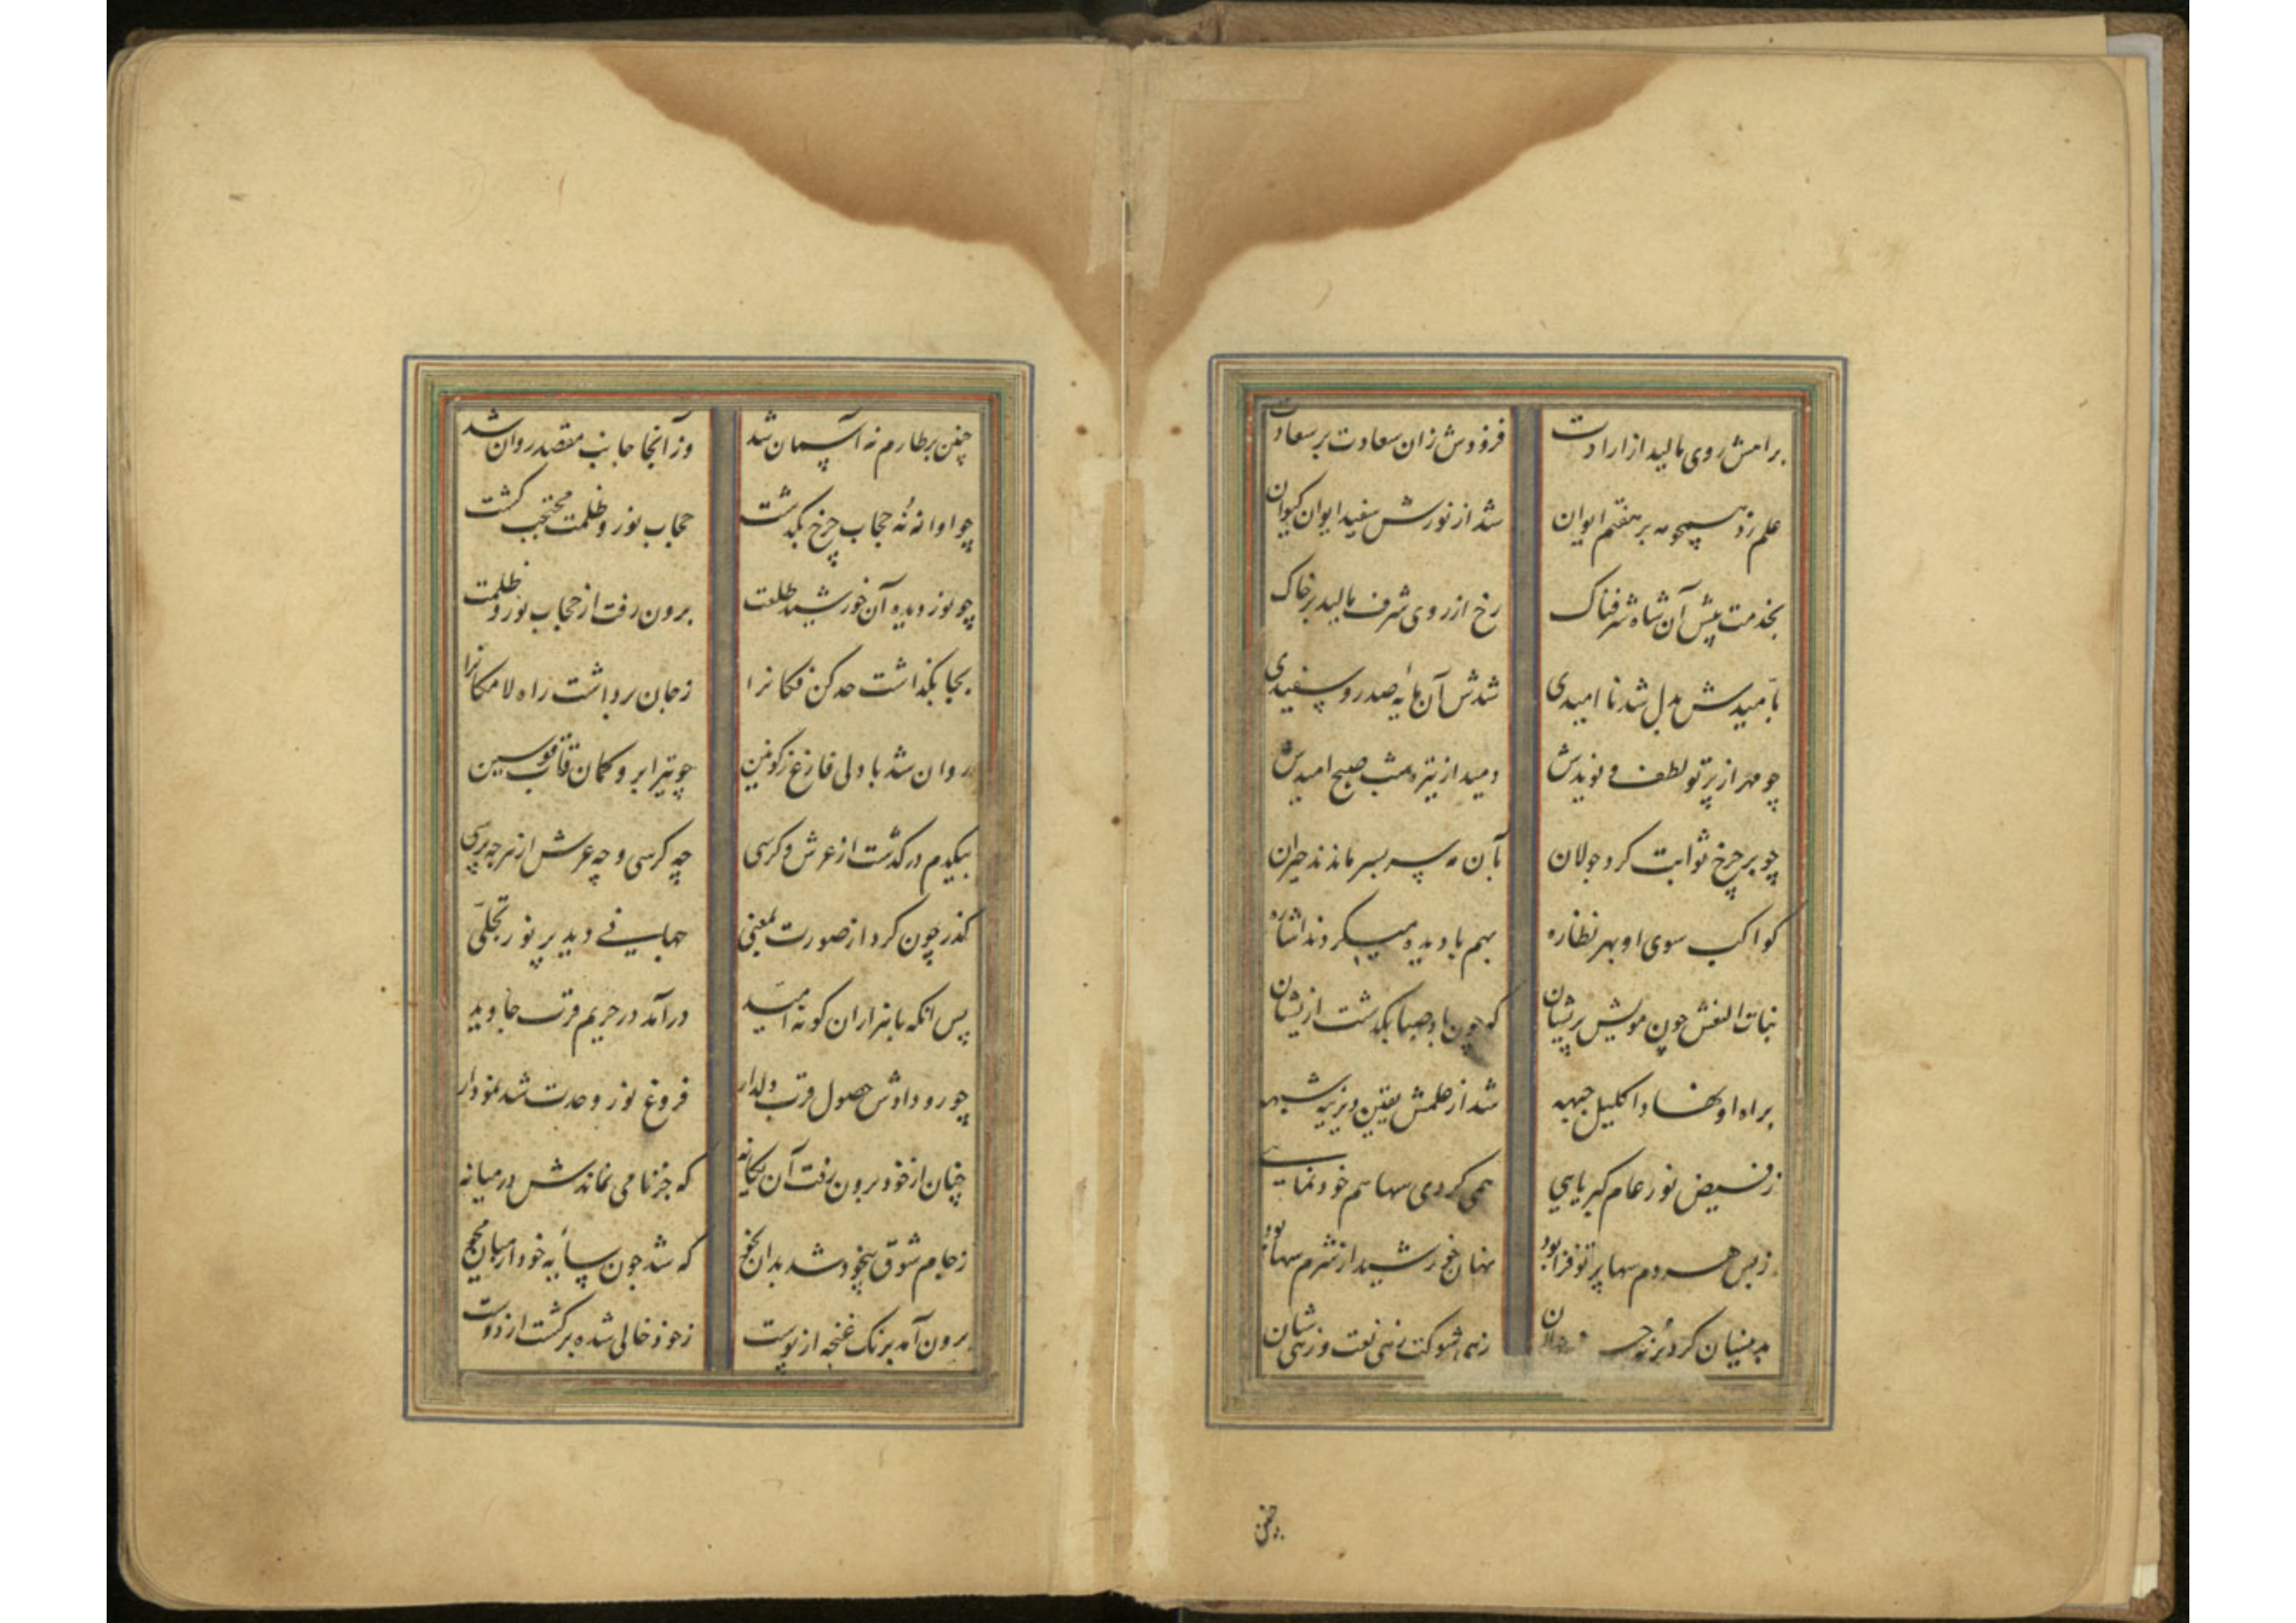 براهش روی مالید از ارادت فزودش زان سعادت بر سعادت
علم زد همچو مه بر هفتم ایوان شد از نورش سفید ایوان کیوان
بخدمت پیش آن شاه شرفناک رخ از روی شرف مالید بر خاک
بامیدش بدل شد نا امیدی شدش آن مایهٔ صد رو سپیدی
چو مهر از پرتو لطف و نویدش دمید از تیره شب صبح امیدش
چو بر چرخ ثوابت کرد جولان بآن مه سر بسر ماندند حیران
کواکب سوی او بهر نظاره بهم با دیده میکردند اشاره
بنات النعش چون مویش پریشان که چون باد صبا بگذشت ازیشان
براه او نهاد اکلیل جبهه شد از علمش یقین دیرینه شبهه
ز فیض نور عام کبریایی همی کردی سها هم خود نمایی
ز بس هر دم سها پرتو فزا بود نهان خورشید از شرم سها بود
بدینسان کرد زهی شوکت زهی رفعت زهی شان
چنین
چنین بر طارم نه آسمان شد وز آنجا جانب مقصد روان شد
چو او از نه حجاب چرخ بگذشت حجاب نور و ظلمت محتجب گشت
چو نور دیده آن خورشید طلعت برون رفت از حجاب نور و ظلمت
بجا بگذاشت حد کن فکانرا ز جان برداشت راه لامکانرا
روان شد با دلی فارغ ز کونین چو تیر ابرو کمان قاب قوسین
بیکدم درگذشت از عرش و کرسی چه کرسی و چه عرش از هر چه پرسی
گذر چون کرد از صورت بمعنی جهانی دید پر نور تجلی
پس آنکه با هزاران گونه امید درآمد در حریم قرب جاوید
چو رو دادش حصول قرب دلدار فروغ نور وحدت شد نمودار
چنان از خود برون رفت آن یگانه که جز نامی نماندش در میانه
ز جام شوق بیخود شد بدان نحو که شد چون سایه خود از میان محو
برون آمد برنگ غنچه از پوست ز خود خالی شده برگشت از دوست